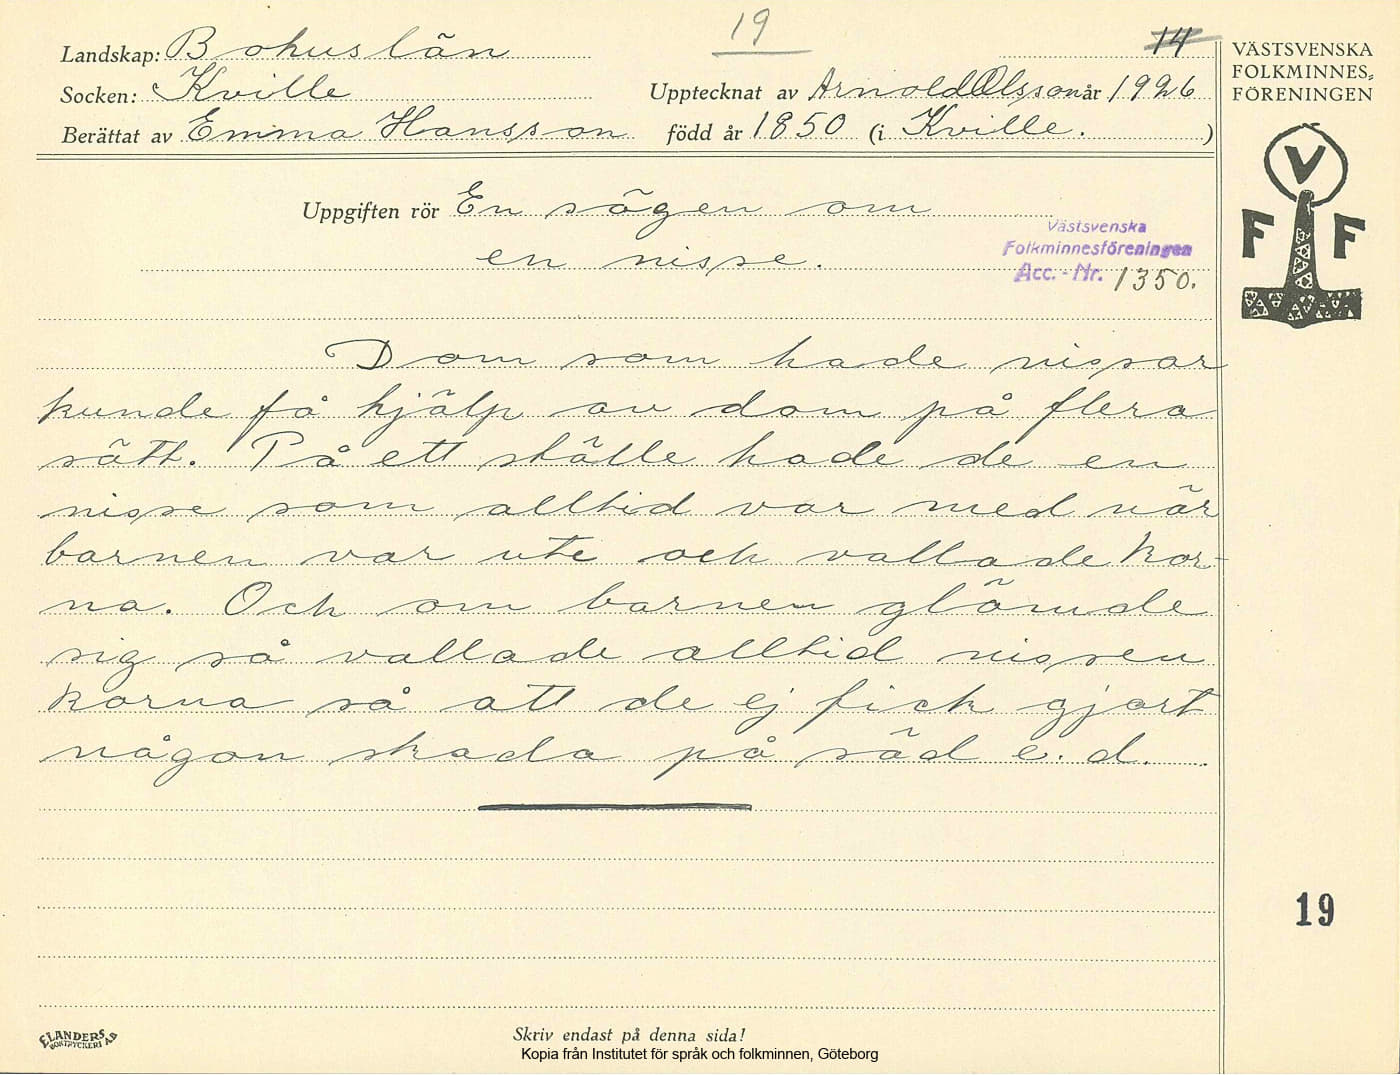 19
14
Landskap: Bohuslän
Socken: Kville
Upptecknat av Arnold Olsson år 1926
Berättat av Emma Hansson född år 1850 (i Kville. )
VÄSTSVENSKA
FOLKMINNES-
FÖRENINGEN
V
F F
Uppgiften rör En sägen om
en nisse.
Västsvenska
Folkminnesföreningen
Acc. - Nr. 1350.
Dom som hade nissar
kunde få hjälp av dom på flera
sätt. På ett ställe hade de en
nisse som alltid var med när
barnen var ute och vallade kor-
na. Och om barnen glömde
sig så vallade alltid nissen
korna så att de ej fick gjort
någon skada på säd e. d.
19
Skriv endast på denna sida!
ELANDERS
BOKTRYCKERI AB
Kopia från Institutet för språk och folkminnen, Göteborg